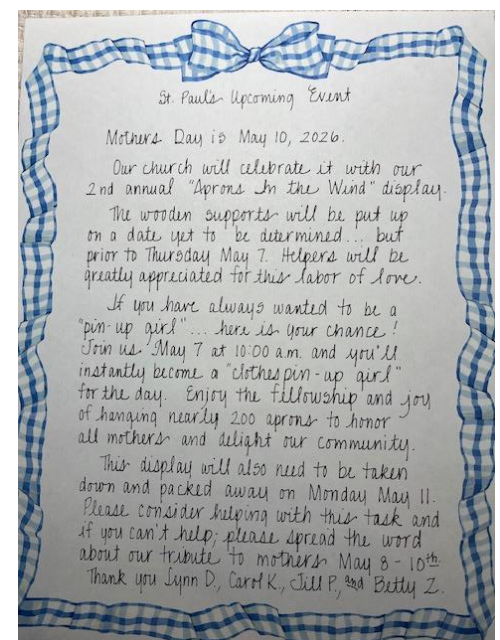 St. Paul's Upcoming Event
Mothers Day is May 10, 2026.
Our church will celebrate it with our
2nd annual "Aprons In the Wind" display.
The wooden supports will be put up
on a date yet to be determined... but
prior to Thursday May 7. Helpers will be
greatly appreciated for this labor of love.
If you have always wanted to be a
"pin-up girl"... here is your chance!
Join us May 7 at 10:00 a.m. and you'll
instantly become a "clothespin-up girl"
for the day. Enjoy the fellowship and joy
of hanging nearly 200 aprons to honor
all mothers and delight our community.
This display will also need to be taken
down and packed away on Monday May 11.
Please consider helping with this task and
if you can't help; please spread the word
about our tribute to mothers May 8 - 10th.
Thank you Lynn D., Carol K., Jill P., and Betty Z.